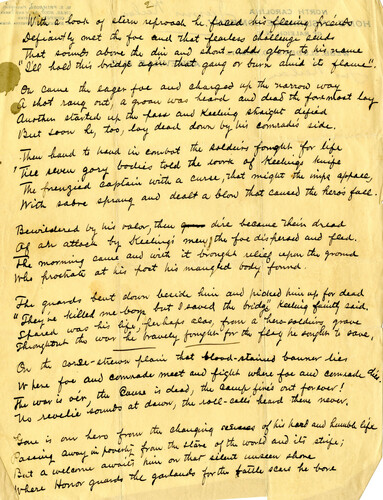 2
NORTH CAROLINA
With a look of stern reproach he faced his fleeing friends
Defiantly met the foe and that fearless challenge sends
That sounds above the din and shout-adds glory to his name
"I'll hold this bridge agin that gang or burn amid its flame".
On came the eager foe and charged up the narrow way
A shot rang out, a groan was heard and dead the foremost lay
Another started up the pass and Keeling straight defied
But soon he, too, lay dead down by his comrade's side.
Then hand to hand in combat the soldiers fought for life
'Till seven gory bodies told the work of Keeling's knife
The frenzied Captain with a curse, that might the imps appall,
With sabre sprang and dealt a blow that caused the hero's fall.
Bewildered by his valor, then dire became their dread
Of an attack by Keeling's men, the foe dispersed and fled.
The morning came and with it brought relief upon the ground
Who prostrate at his post his mangled body found.
The guards bent down beside him and picked him up for dead
"They've killed me boys but I saved the bridge" Keeling faintly said.
Spared was his life, perhaps alas, from a "hero-soldier's grave
Throughout the war he bravely fought for the flag he sought to save,
On the corse-strewn plain that blood-stained banner lies
Where foe and comrade meet and fight where foe and comrade dies,
The war is o'er, the Cause is dead, the camp fires out forever!
No reveille sounds at dawn, the roll-calls heard there never.
Gone is our hero from the changing scenes of his hard and humble life
Passing away in poverty from the stare of the world and its strife;
But a welcome awaits him on that silent unseen shore
Where Honor guards the garlands for the battle scars he bore